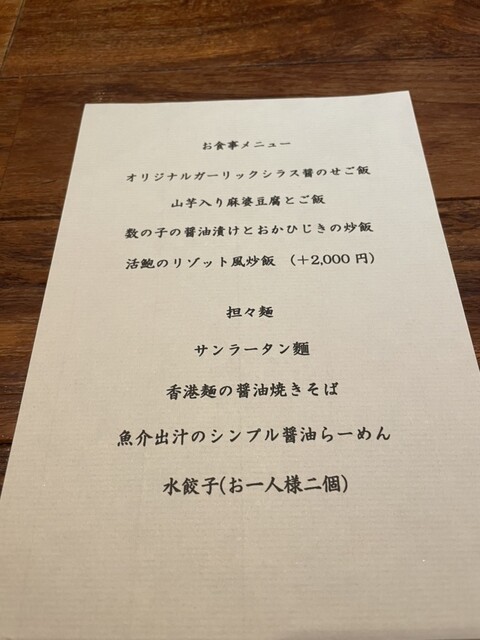 お食事メニュー
オリジナルガーリックシラス醤のせご飯
山芋入り麻婆豆腐とご飯
数の子の醤油漬けとおかひじきの炒飯
活鮑のリゾット風炒飯 （＋2,000 円）
担々麺
サンラータン麺
香港麺の醤油焼きそば
魚介出汁のシンプル醤油らーめん
水餃子(お一人様二個)